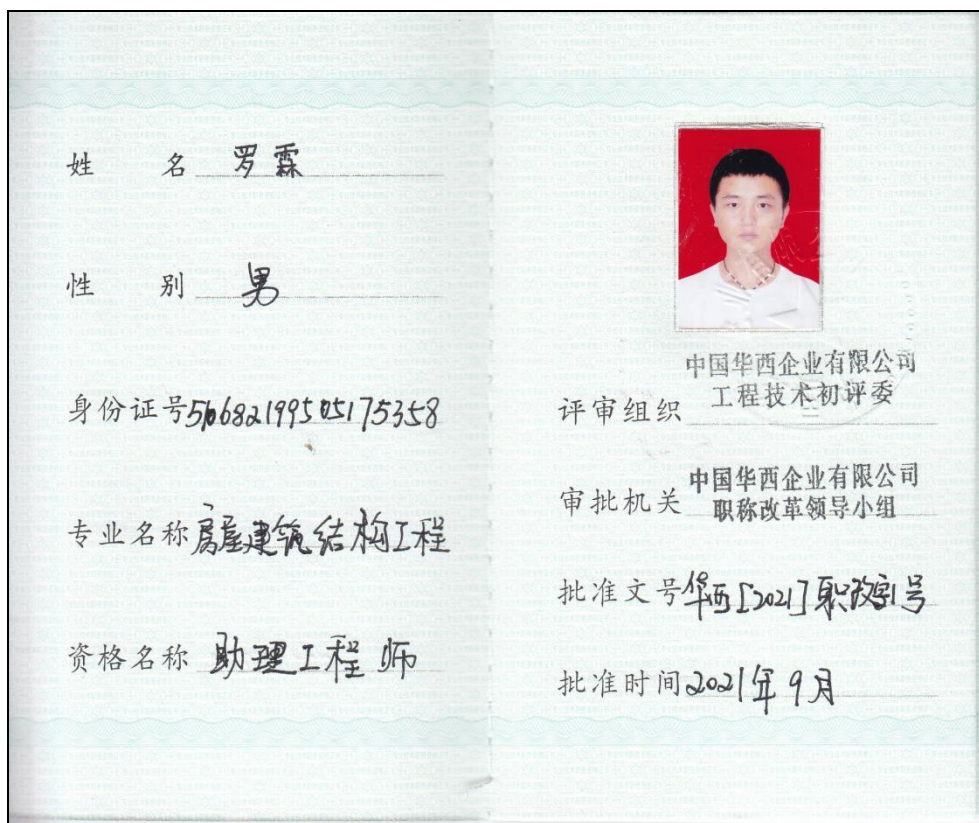 姓 名 罗霖
性 别 男
身份证号510682199505175358
专业名称 房屋建筑结构工程
资格名称 助理工程师
中国华西企业有限公司
工程技术初评委
评审组织
中国华西企业有限公司
审批机关
职称改革领导小组
批准文号 华西[2021]职改字1号
批准时间 2021年9月